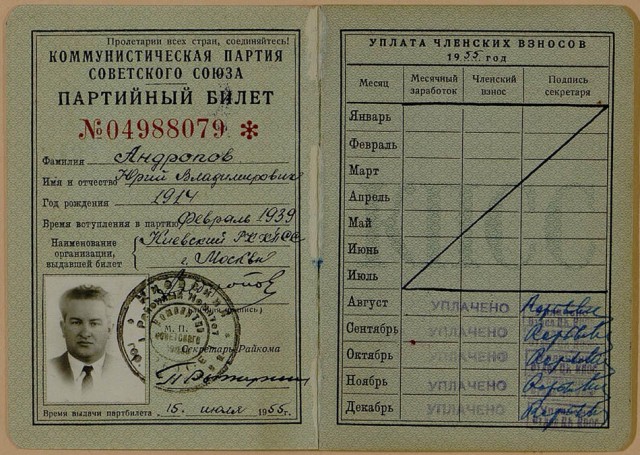 Пролетарии всех стран, соединяйтесь!
КОММУНИСТИЧЕСКАЯ ПАРТИЯ
СОВЕТСКОГО СОЮЗА
ПАРТИЙНЫЙ БИЛЕТ
№04988079 *
Фамилия Андропов
Имя и отчество Юрий Владимирович
Год рождения 1914
Время вступления в партию Февраль 1939
Наименование
организации,
выдавшей билет
Киевский РК КПСС
г. Москвы
М. П.
Секретарь Райкома
Время выдачи партбилета 15. июля 1955г.
УПЛАТА ЧЛЕНСКИХ ВЗНОСОВ
1955 год
Месяц
Месячный
заработок
Членский
взнос
Подпись
секретаря
Январь
Февраль
Март
Апрель
Май
Июнь
Июль
Август УПЛАЧЕНО
Сентябрь УПЛАЧЕНО
Октябрь УПЛАЧЕНО
Ноябрь УПЛАЧЕНО
Декабрь УПЛАЧЕНО